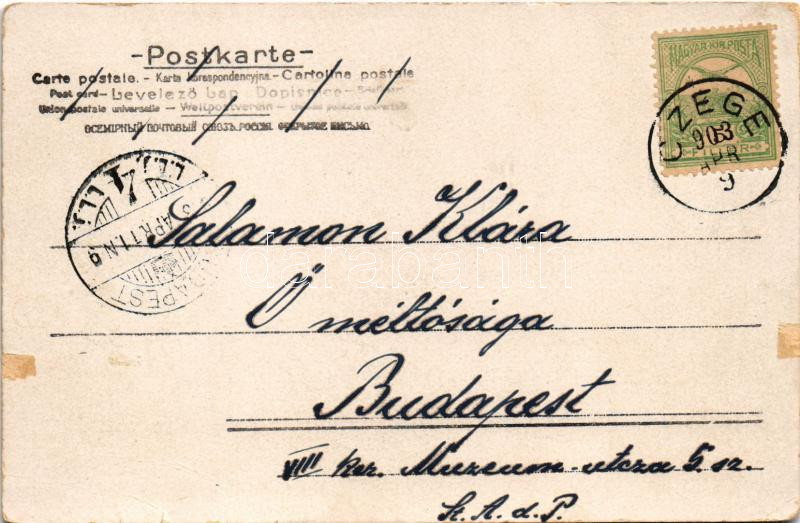 -Postkarte-
Carte postale. - Karta korespondencyjna. - Cartolina postale
Post card - Levelező Lap Dopisnice - Briefkort
Union postale universelle - Weltpostverein -
ВСЕМІРНЫЙ ПОЧТОВЫЙ СОЮЗЪ. РОССІЯ ОТКРЫТОЕ ПИСЬМО
MAGYAR KIR. POSTA
FILLÉR
CZEGE
903
APR
9
BUDAPEST
APR 11 N 9
Salamon Klára
Ő méltósága
Budapest
VIII ker. Muzeum-utcza 5. sz.
St. A. d. P.
darabanth